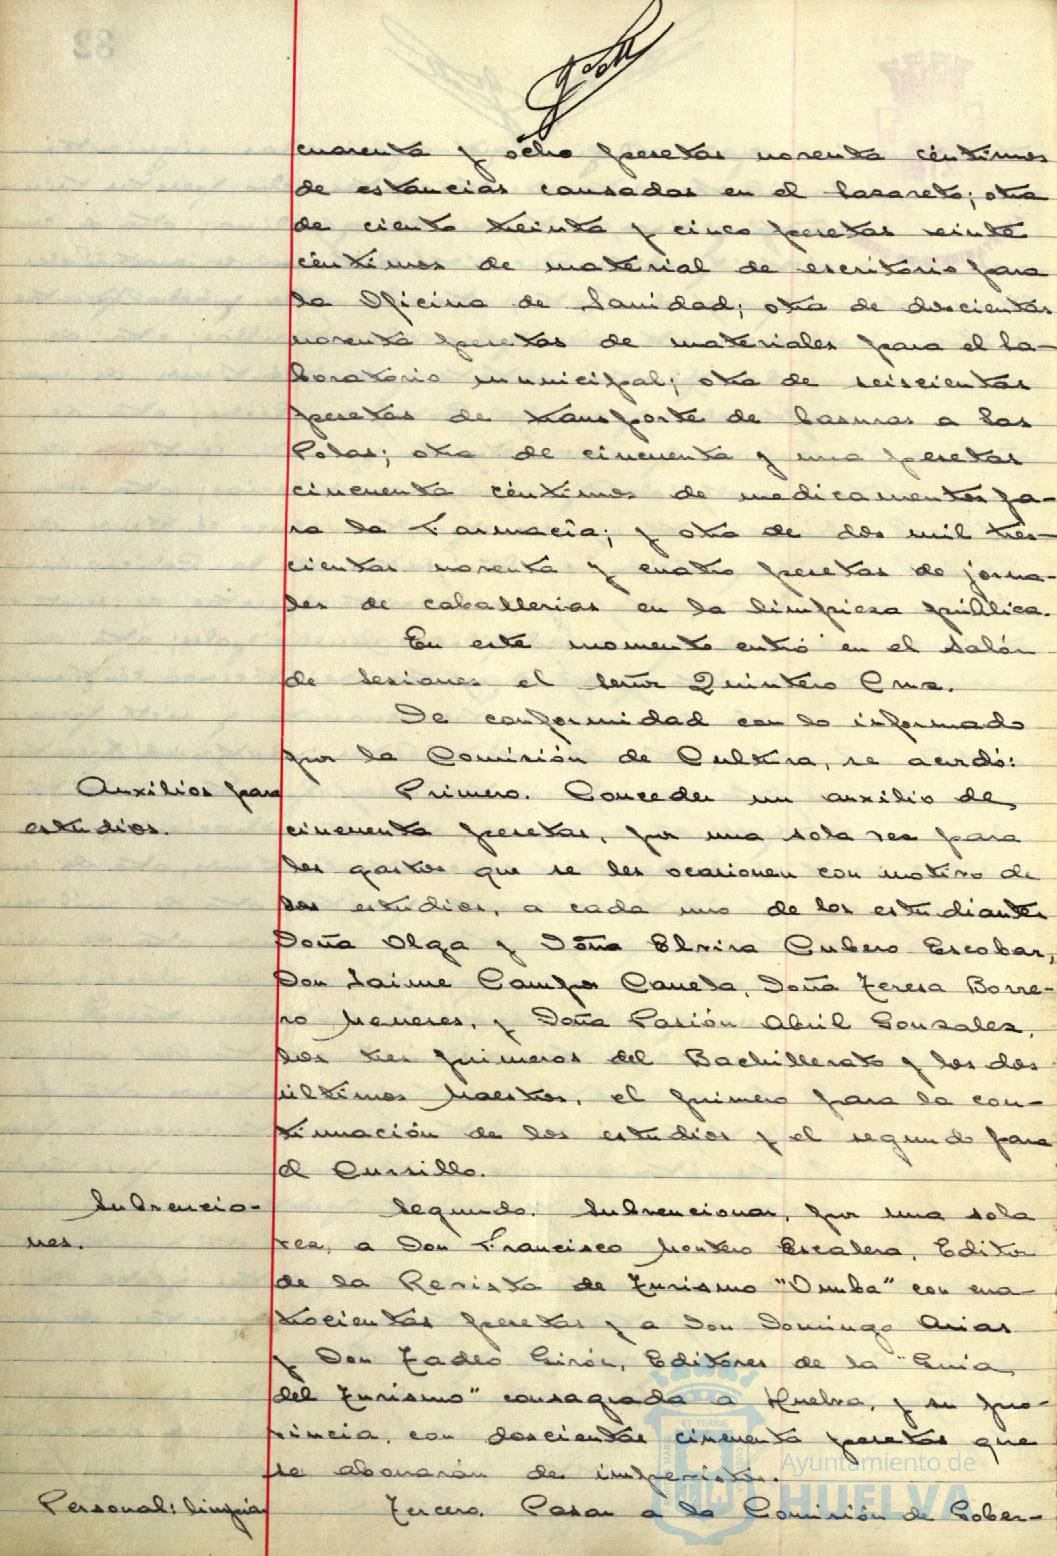 82
cuarenta y ocho pesetas noventa céntimos
de estancias causadas en el Lazareto; otra
de ciento treinta y cinco pesetas veinte
céntimos de material de escritorio para
la Oficina de Sanidad; otra de doscientas
noventa pesetas de materiales para el La-
boratorio municipal; otra de seiscientas
pesetas de transporte de basuras a las
Polas; otra de cincuenta y una pesetas
cincuenta céntimos de medicamentos pa-
ra la Farmacia; y otra de dos mil tres-
cientas noventa y cuatro pesetas de jorna-
les de caballerias en la limpieza pública.
En este momento entró en el Salón
de sesiones el señor Quintero Cruz.
De conformidad con lo informado
por la Comisión de Cultura, se acordó:
Auxilios para
estudios.
Primero. Conceder un auxilio de
cincuenta pesetas, por una sola vez para
los gastos que se les ocasionen con motivo de
los estudios, a cada uno de los estudiantes
Doña Olga y Doña Elvira Cubero Escobar,
Don Jaime Campos Caneda, Doña Teresa Borre-
ro Meneses, y Doña Pasión Abril Gonzalez,
los tres primeros del Bachillerato y los dos
últimos Maestros, el primero para la con-
tinuación de los estudios y el segundo para
el Cursillo.
Subvencio-
nes.
Segundo. Subvencionar, por una sola
vez, a Don Francisco Montero Escalera, Editor
de la Revista de Turismo "Onuba" con cua-
trocientas pesetas y a Don Domingo Arias
y Don Tadeo Girón, Editores de la "Guia
del Turismo" consagrada a Huelva, y su pro-
vincia, con doscientas cincuenta pesetas que
se abonarán de imprevistos.
Personal: limpia
Tercero. Pasar a la Comisión de Gober-
Ayuntamiento de
HUELVA